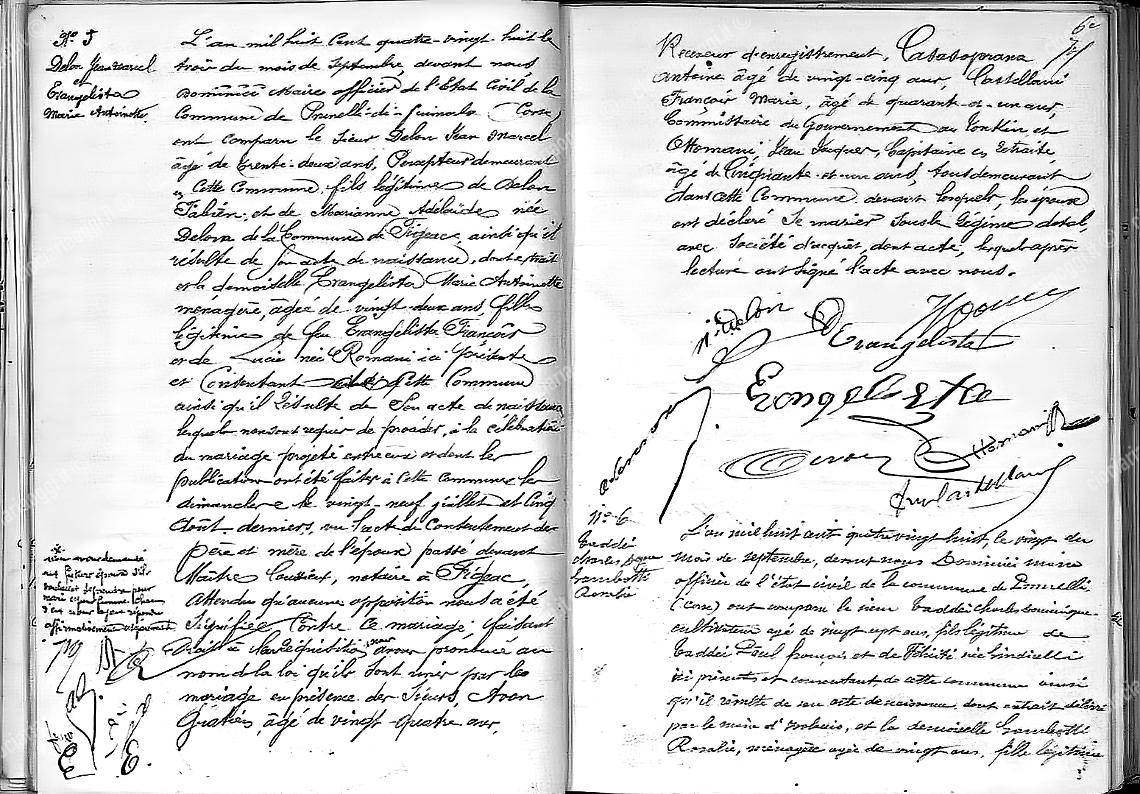 N° 5
Delon Jean Marcel
et
Evangelista
Marie Antoinette.
L'an mil huit Cent quatre-vingt-huit le
trois du mois de Septembre, devant nous
Maire officier de l'Etat Civil de la
Commune de Prunelli-di-fiumorbo (Corse)
ont comparu le Sieur Delon Jean Marcel
âgé de trente-deux ans, Percepteur demeurant
en Cette Commune, fils légitime de Delon
Fabien et de Marianne Adélaïde née
de la Commune de Figeac, ainsi qu'il
résulte de son acte de naissance, dont extrait
et la demoiselle, Evangelista Marie Antoinette
ménagère, âgée de vingt-deux ans, fille
légitime de feu Evangelista François
et de Lucie née Romani ici présente
et Consentante de Cette Commune
ainsi qu'il résulte de Son acte de naissance
lesquels nous ont requis de procéder, à la célébration
du mariage projeté entre eux et dont les
publications ont été faites à Cette commune les
dimanches le vingt neuf juillet et Cinq
Août derniers, vu l'acte de Consentement des
Père et mère de l'époux passé devant
Maître notaire à Figeac,
Attendu qu'aucune opposition nous a été
Signifiée Contre Ce mariage; faisant
droit à leur réquisition nous avons prononcé au
nom de la loi qu'ils sont unis par les
mariage en présence des Sieurs, Avon
Gratien, âgé de vingt-quatre ans,
Receveur d'enregistrement, Casasoprana
Antoine âgé de vingt-cinq ans, Castellani
François Marie, âgé de quarante-et-un ans,
Commissaire du Gouvernement au Tonkin, et
Ottomani Jean Jacques, Capitaine en retraite,
âgé de Cinquante-et-un ans, tous demeurant
dans cette Commune, devant lesquels, les époux
ont déclaré Se marier Sous le Régime dotal,
avec Société d'acquêts, dont acte, lesquels après
lecture ont signé l'acte avec nous.
Delon
Evangelista
Evangelista
Ottomani
N° 6
Taddei
Charles
Gambotti
Rosalie
L'an mil huit cent quatre vingt huit, le vingt du
mois de septembre, devant nous Dominici maire
officier de l'état civil de la commune de Prunelli
(Corse) ont comparu le sieur Taddei Charles Dominique
cultivateur agé de vingt sept ans, fils légitime de
Taddei Paul françois et de Félicité née
ici présents et consentant de cette commune ainsi
qu'il résulte de son acte de naissance, dont extrait délivré
par le maire d' et la demoiselle Gambotti
Rosalie, ménagère agée de vingt ans, fille légitime